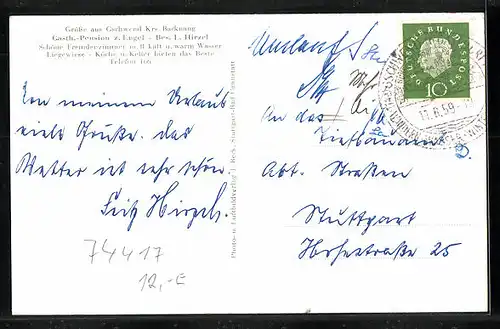 Grüße aus Gschwend Krs. Backnang
Gasth.-Pension z. Engel - Bes. L. Hirzel
Schöne Fremdenzimmer m. fl. kalt u. warm Wasser
Liegewiese - Küche u. Keller bieten das Beste
Telefon 166
Von meinem Urlaub
viele Grüße. das
Wetter ist sehr schön.
Fritz
74417
12,-€
Photo- u. Verlag L. Beck, Stuttgart-Bad Cannstatt
Umlauf
DEUTSCHE BUNDESPOST
10
11.8.59
An das
Tiefbauamt
Abt. Straßen
Stuttgart
Hohestraße 25